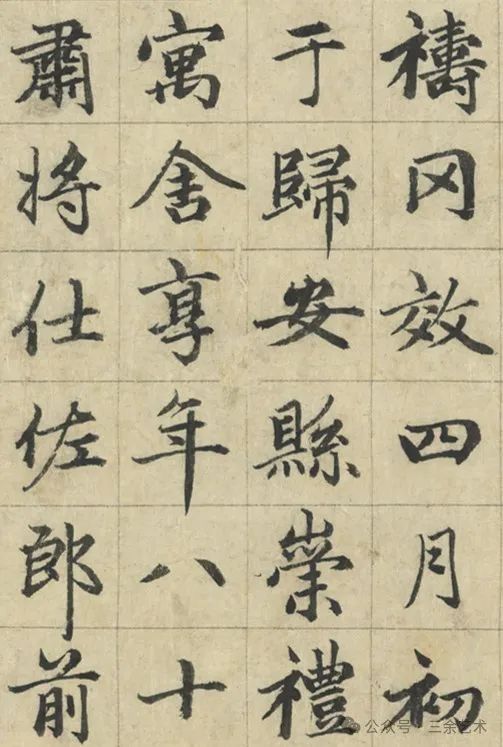 禱冈效四月初
于歸安縣崇禮
寓舍享年八十
肅將仕佐郎前
公众号·三余艺术